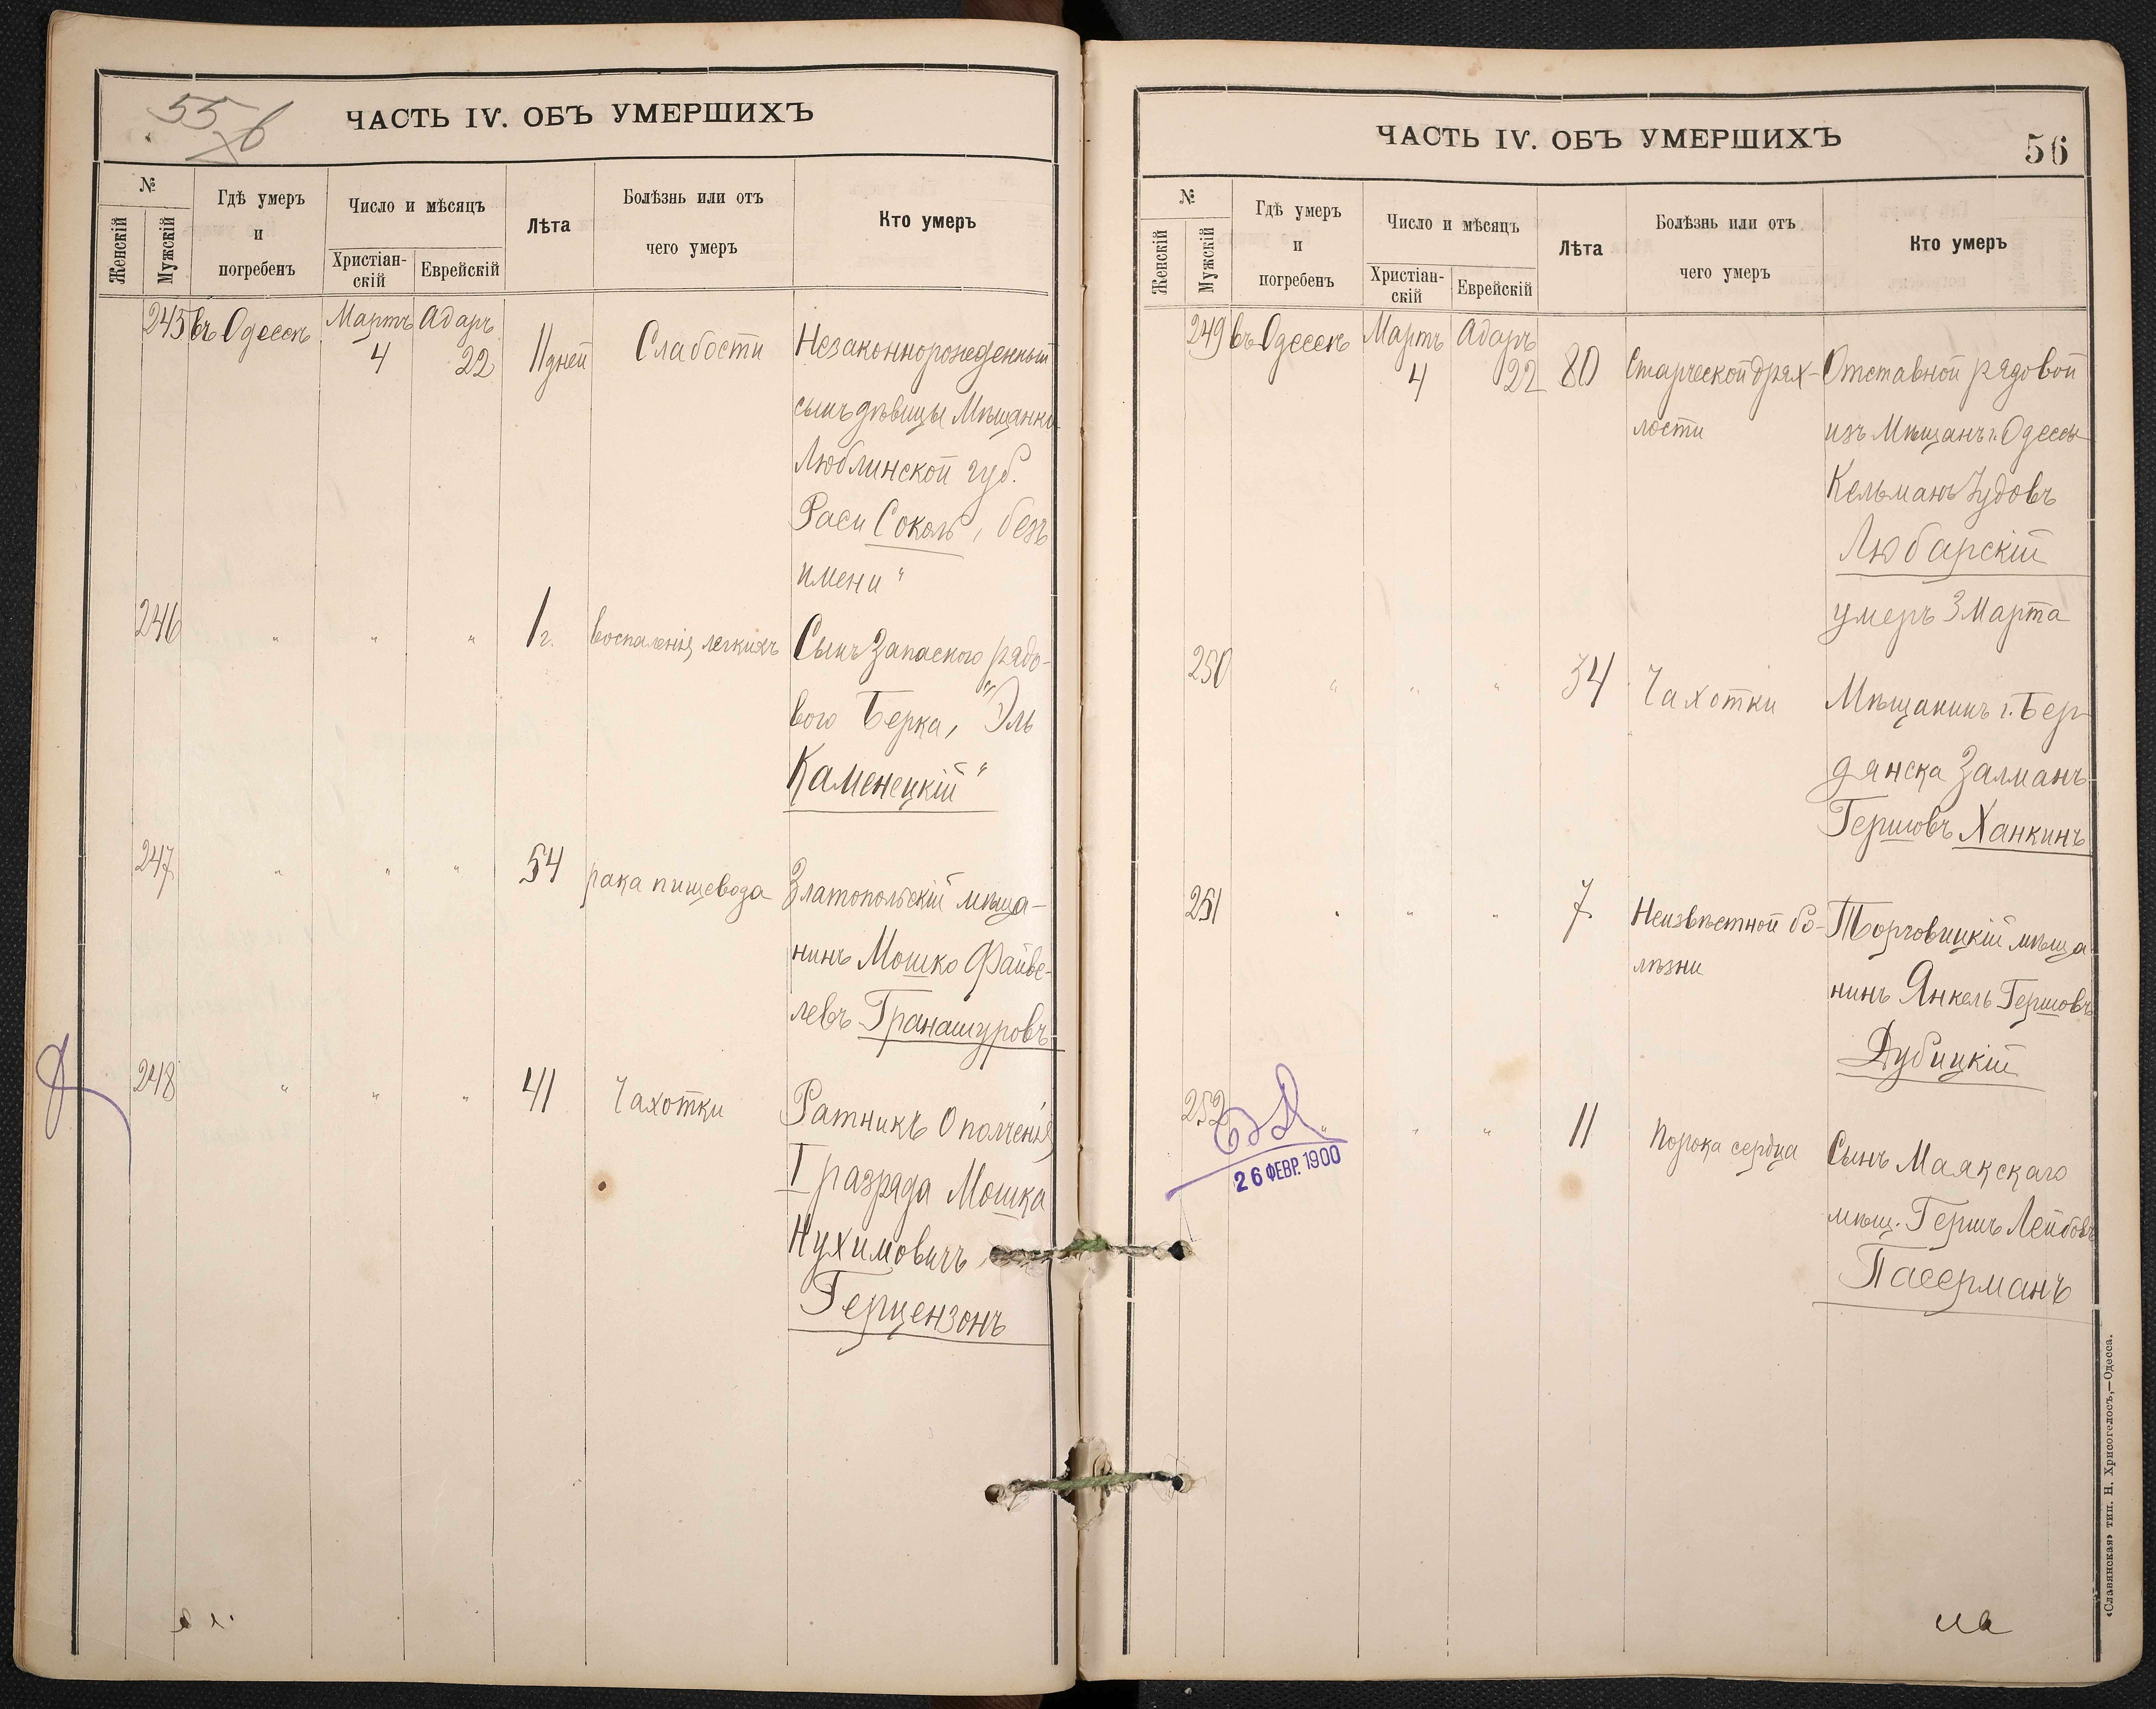 55
ЧАСТЬ IV. ОБЪ УМЕРШИХЪ
№
Женскій
Мужскій
Гдѣ умеръ
и
погребенъ
Число и мѣсяцъ
Христіан-
скій
Еврейскій
Лѣта
Болѣзнь или отъ
чего умеръ
Кто умеръ
245 въ Одессѣ Мартъ Адаръ
4 22 11 дней Слабости Незаконнорожденный
сынъ дѣвицы Мѣщанки
Люблинской губ.
Раси Соколъ, безъ
имени"
246 " " " 1 г. воспаленія легкихъ Сынъ Запаснаго рядо-
вого Берка, "Эль
Каменецкій"
247 " " " 54 рака пищевода Златопольскій мѣща-
нинъ Мошко Файве-
левъ Гранатуровъ
248 " " " 41 Чахотки Ратникъ Ополченія
I разряда Мошка
Нухимовичъ
Герцензонъ
ЧАСТЬ IV. ОБЪ УМЕРШИХЪ
56
№
Женскій
Мужскій
Гдѣ умеръ
и
погребенъ
Число и мѣсяцъ
Христіан-
скій
Еврейскій
Лѣта
Болѣзнь или отъ
чего умеръ
Кто умеръ
249 въ Одессѣ Мартъ Адаръ
4 22 80 Старческой дрях- Отставной рядовой
лости изъ Мѣщанъ г. Одессы
Кельманъ Іудовъ
Любарскій
умеръ 3 Марта
250 " " " 34 Чахотки Мѣщанинъ г. Бер-
дянска Залманъ
Гершовъ Ханкинъ
251 " " " 7 Неизвѣстной бо- Торговицкій мѣща-
лѣзни нинъ Янкель Гершовъ
Дубицкій
252 " " " 11 Порока сердца Сынъ Маякскаго
26 ФЕВР. 1900
мѣщ. Гершъ Лейбовъ
Пасерманъ
«Славянская» тип. Н. Хрисогелосъ,—Одесса.